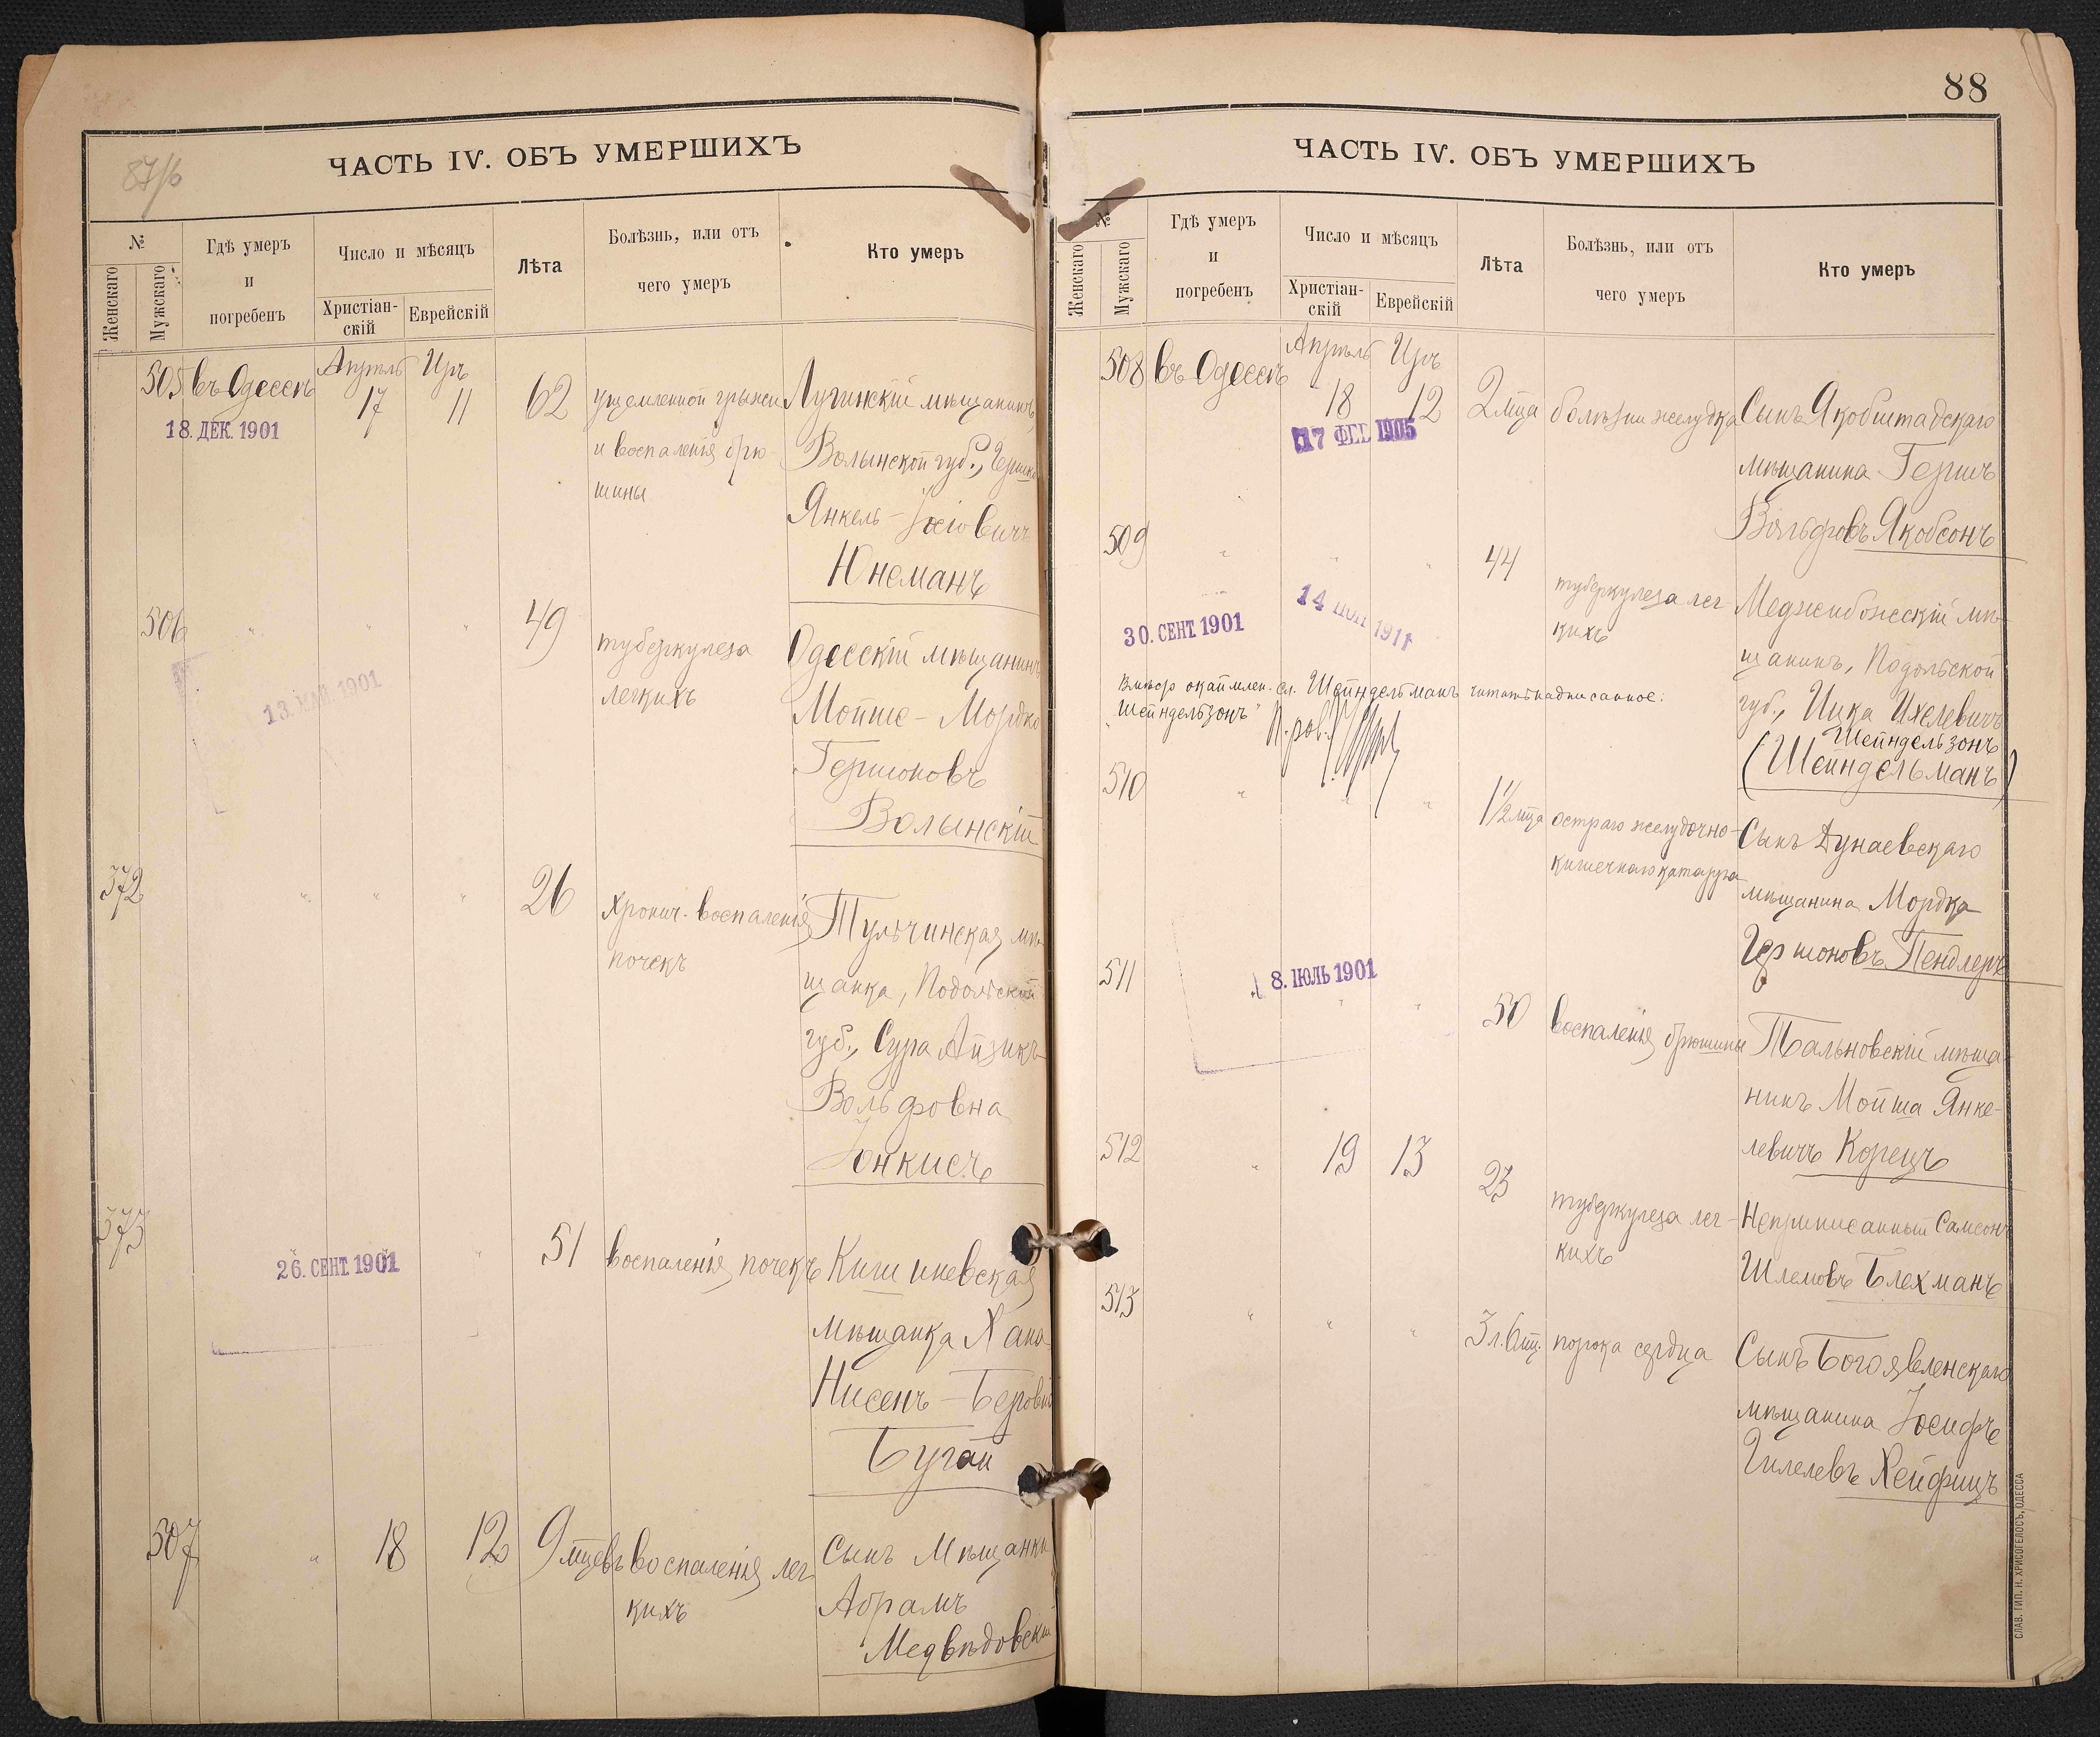 87/б
ЧАСТЬ IV. ОБЪ УМЕРШИХЪ
№
Женскаго
Мужскаго
Гдѣ умеръ
и
погребенъ
Число и мѣсяцъ
Христіан-
скій
Еврейскій
Лѣта
Болѣзнь, или отъ
чего умеръ
Кто умеръ
505 въ Одессѣ Апрѣль 17 Іяръ 11 62
18. ДЕК. 1901
ущемленной грыжи
и воспаленія брю-
шины
Лугинскій мѣщанинъ,
Волынской губ.,
Янкель-Іосіовичъ
Юнеманъ
506 " " " 49
13. МАЙ. 1901
туберкулеза
легкихъ
Одесскій мѣщанинъ
Мойше-Мордко
Гершоновъ
Волынскій
372 " " " 26
хронич. воспаленія
почекъ
Тульчинская мѣ-
щанка, Подольской
губ., Сура Айзикъ-
Вольфовна
Іонкисъ
373 " 51
26. СЕНТ. 1901
воспаленія почекъ
Кишиневская
мѣщанка Хана
Нисенъ-Беровна
Бугай
507 " 18 12 9 мцевъ
воспаленія лег
кихъ
Сынъ Мѣщанки
Абрамъ
Медвѣдовскій
88
ЧАСТЬ IV. ОБЪ УМЕРШИХЪ
№
Женскаго
Мужскаго
Гдѣ умеръ
и
погребенъ
Число и мѣсяцъ
Христіан-
скій
Еврейскій
Лѣта
Болѣзнь, или отъ
чего умеръ
Кто умеръ
508 въ Одессѣ Апрѣль 18 Іяръ 12 2 мца
17 ФЕВ 1905
болѣзни желудка
Сынъ Якобштадскаго
мѣщанина Гершъ
Вольфовъ Якобсонъ
509 " " " 44
30. СЕНТ. 1901
14 1911
туберкулеза лег
кихъ
Меджибожскій мѣ-
щанинъ, Подольской
губ., Ицка Ихелевичъ
Шейндельзонъ
(Шейндельманъ)
Вмѣсто окаймлен. сл. Шейндельманъ читать надписанное:
"Шейндельзонъ"
510 " " " 1½ мца
остраго желудочно-
кишечнаго катарра
Сынъ Дунаевскаго
мѣщанина Мордка
Гершоновъ Пендлеръ
511 " " 50
8. ІЮЛЬ 1901
воспаленія брюшины
Тальновскій мѣща-
нинъ Мойша Янке-
левичъ Корецъ
512 " 19 13 23
туберкулеза лег-
кихъ
Неприписанный Самсонъ
Шлемовъ Блехманъ
513 " " " 3 л. 6 мц.
порока сердца
Сынъ Богоявленскаго
мѣщанина Іосифъ
Гилелевъ Хейфицъ
СЛАВ. ТИП. Н. ХРИСОГЕЛОСЪ, ОДЕССА